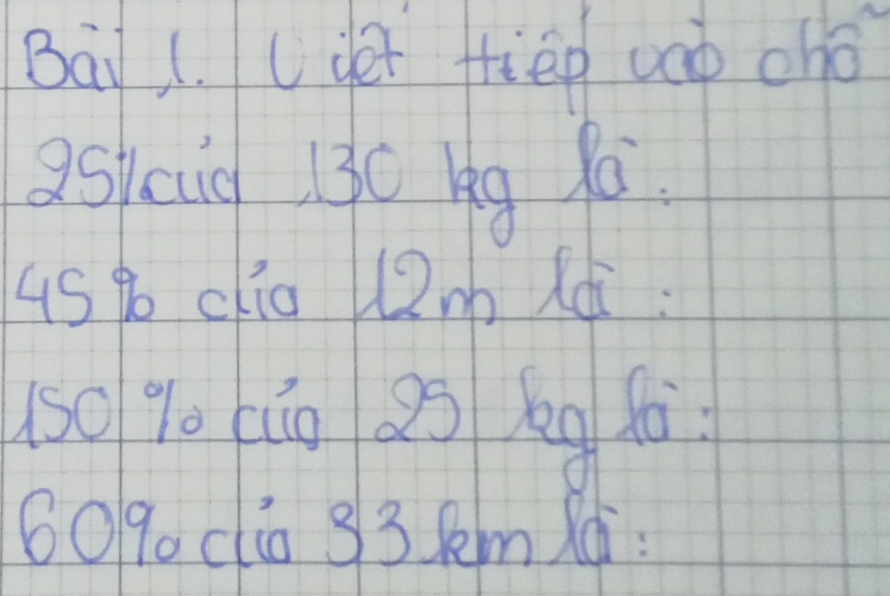 Bài 1. Viết tiếp vào chỗ
25% của 130 kg là:
45% của 12m là:
150% của 25 kg là:
60% của 33 km là: